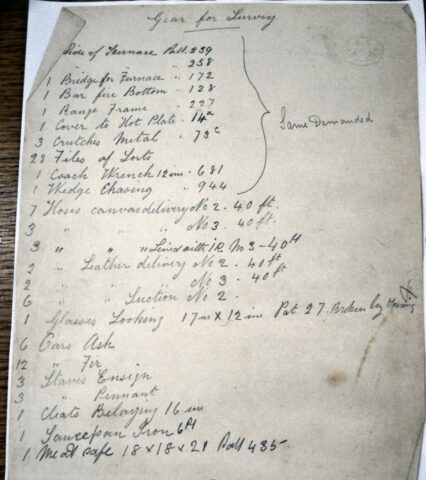 Gear for Survey
Side of Furnace Patt. 239
" " 258
1 Bridge for Furnace " 172
1 Bar fire Bottom " 128
1 Range Frame " 227
1 Cover to Hot Plate " 14a
3 Crutches Metal " 73c
Same Demanded
23 Files of Sorts
1 Coach Wrench 12 in - 681
1 Wedge Chasing " 944
7 Hoses canvas delivery No 2 - 40 ft.
3 " " " No 3 - 40 ft.
3 " " " Lined with I.R. No 3 - 40 ft
2 " Leather delivery No 2 - 40 ft
2 " " " No 3 - 40 ft
6 " " Suction No 2 -
1 Glasses Looking 17 in X 12 in Pat 27. Broken by
6 Oars Ash
12 " Fir
3 Staves Ensign
3 " Pennant
1 Cleats Belaying 16 in
1 Saucepan Iron 6 Pt
1 Meat safe 18 x 18 x 21 Patt 485